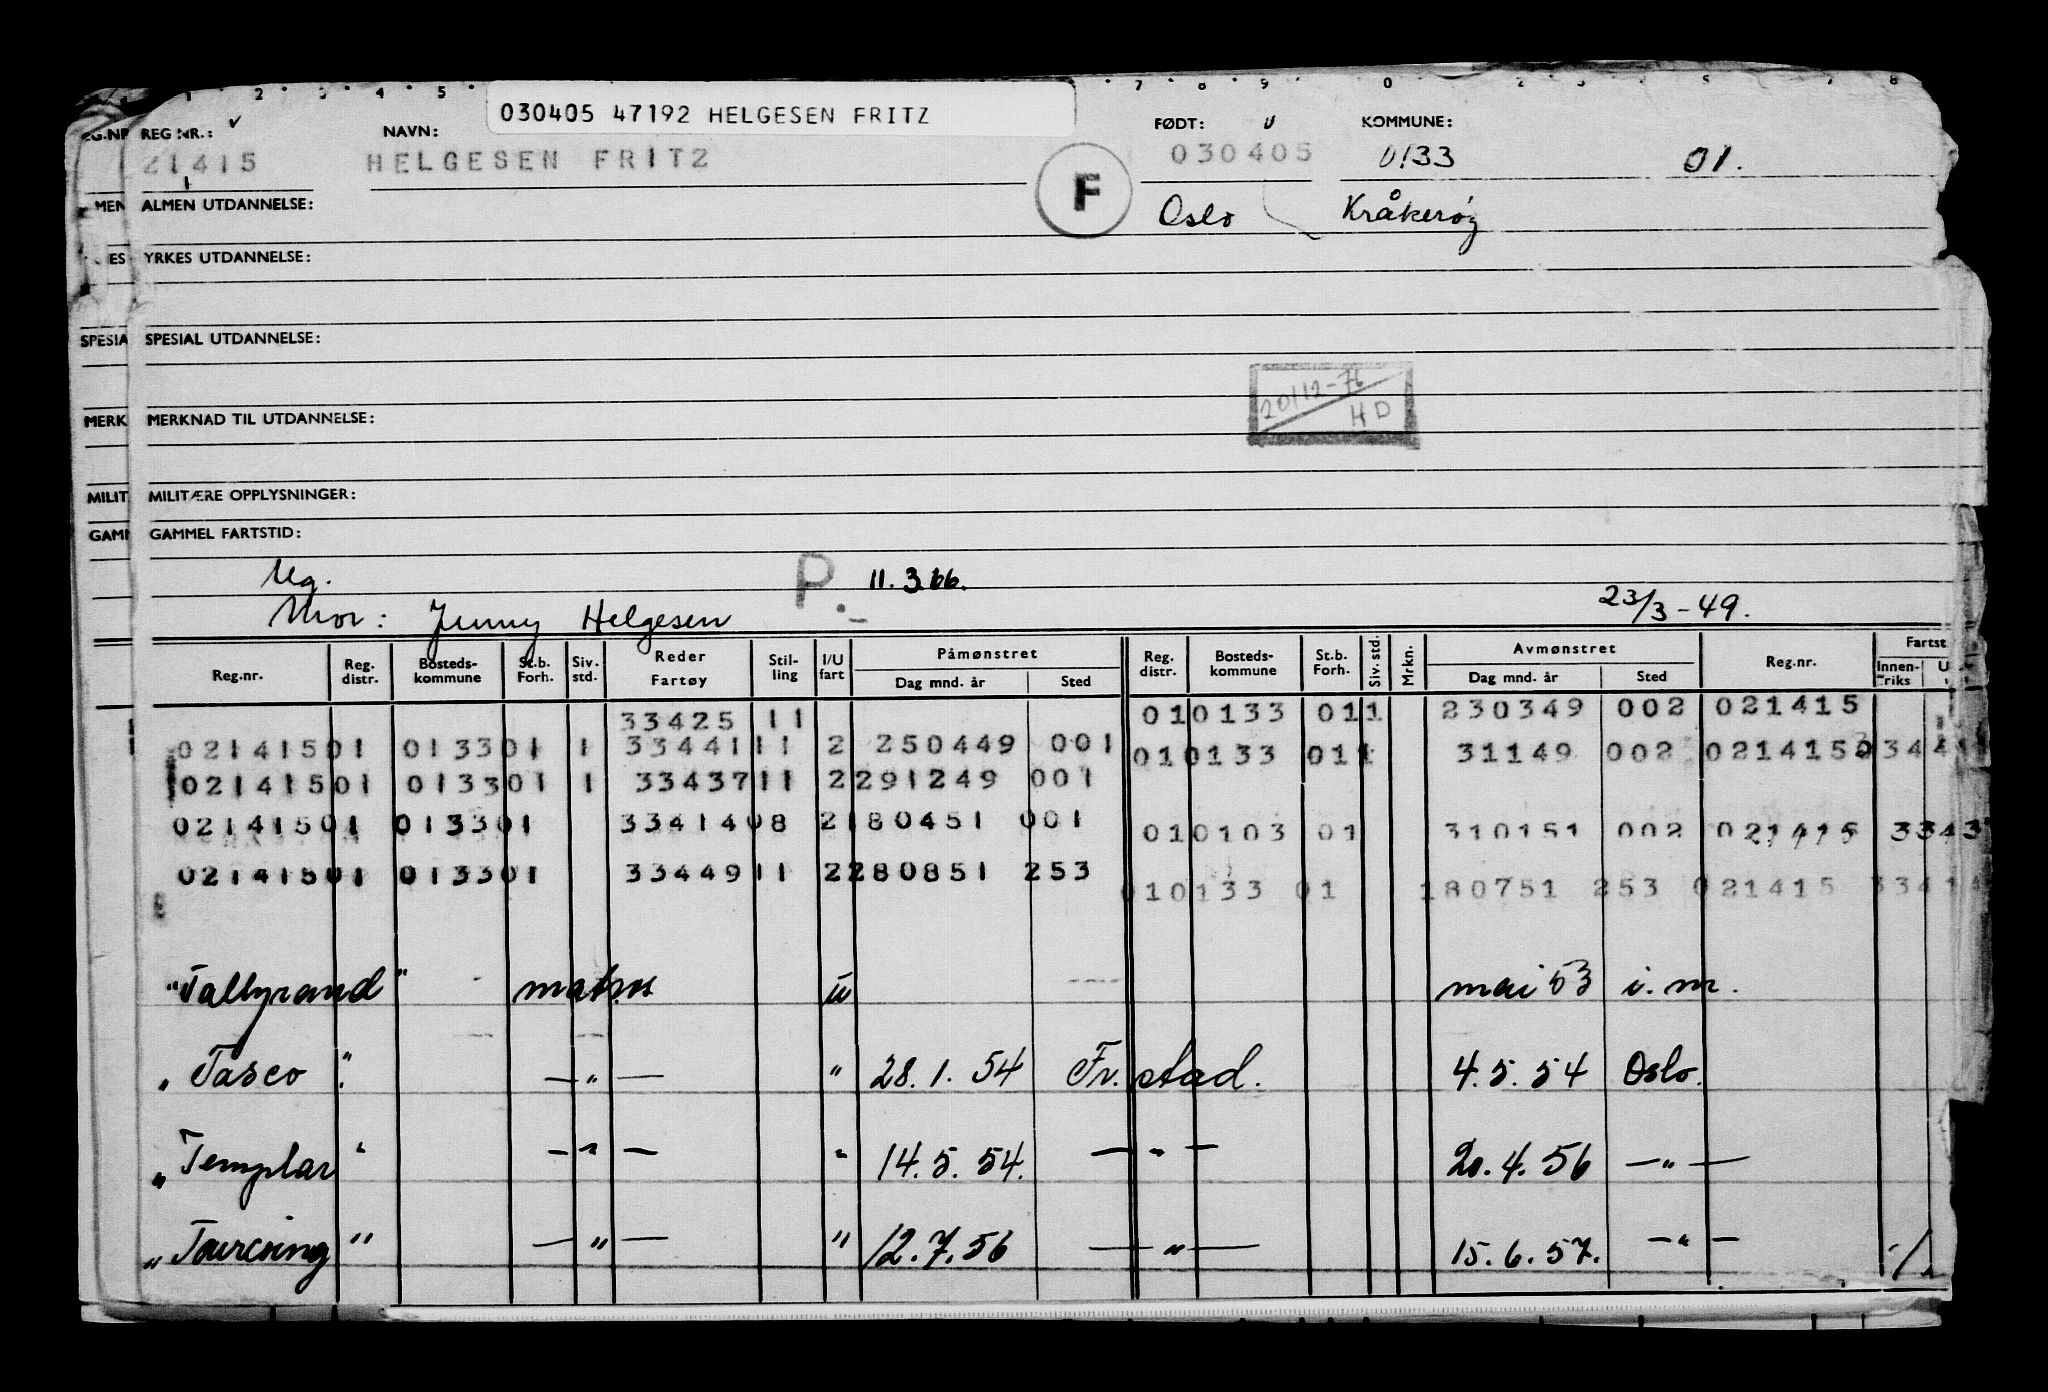 030405 47192 HELGESEN FRITZ
REG NR.: NAVN: FØDT: KOMMUNE:
21415 HELGESEN FRITZ F 030405 0133 01.
ALMEN UTDANNELSE: Oslo Kråkerøy
YRKES UTDANNELSE:
SPESIA SPESIAL UTDANNELSE:
20/12-76
MERK MERKNAD TIL UTDANNELSE: HD
MILIT MILITÆRE OPPLYSNINGER:
GAMM GAMMEL FARTSTID:
Ug. P. 11.3.66.
Mor: Jenny Helgesen 23/3-49.
Reg.nr. Reg. distr. Bosteds-kommune St.b. Forh. Siv. std. Reder Fartøy Stil-ling I/U fart Påmønstret Dag mnd. år Sted Reg. distr. Bosteds-kommune St.b. Forh. Siv. std. Mrkn. Avmønstret Dag mnd. år Sted Reg.nr. Fartst Innen-riks U
33425 11 010133 011 230349 002 021415
02141501 013301 1 33441 11 2 250449 001 010133 011 31149 002 021415
02141501 013301 1 33437 11 2 291249 001
02141501 013301 33414 08 2 180451 001 010103 01 310151 002 021415 3343
02141501 013301 33449 11 2 280851 253 010133 01 180751 253 021415 33414
"Tallyrand" matros u mai 53 i.m.
"Tasco" —"— " 28.1.54 Fr.stad. 4.5.54 Oslo.
"Templar" —"— " 14.5.54. —"— 20.4.56 —"—
"Tourcoing" —"— " 12.7.56 —"— 15.6.57. —"—